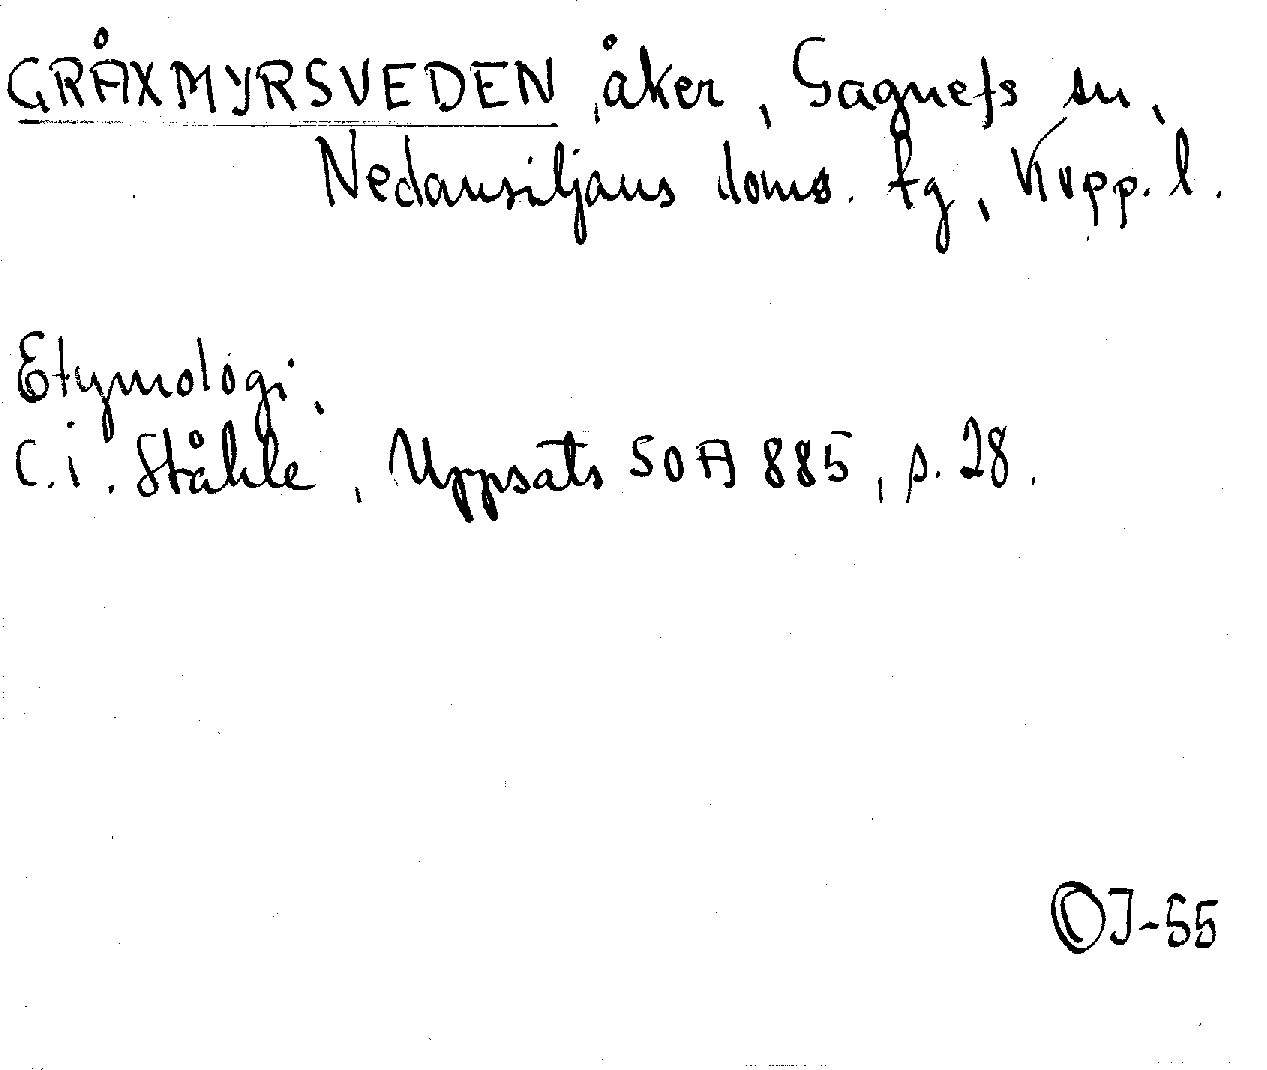 GRÅXMYRSVEDEN, åker, Gagnefs sn,
Nedansiljans doms. fg, Kopp. l.
Etymologi.
C. i. Ståhle, Uppsats SOA 885, s. 28.
OJ-55